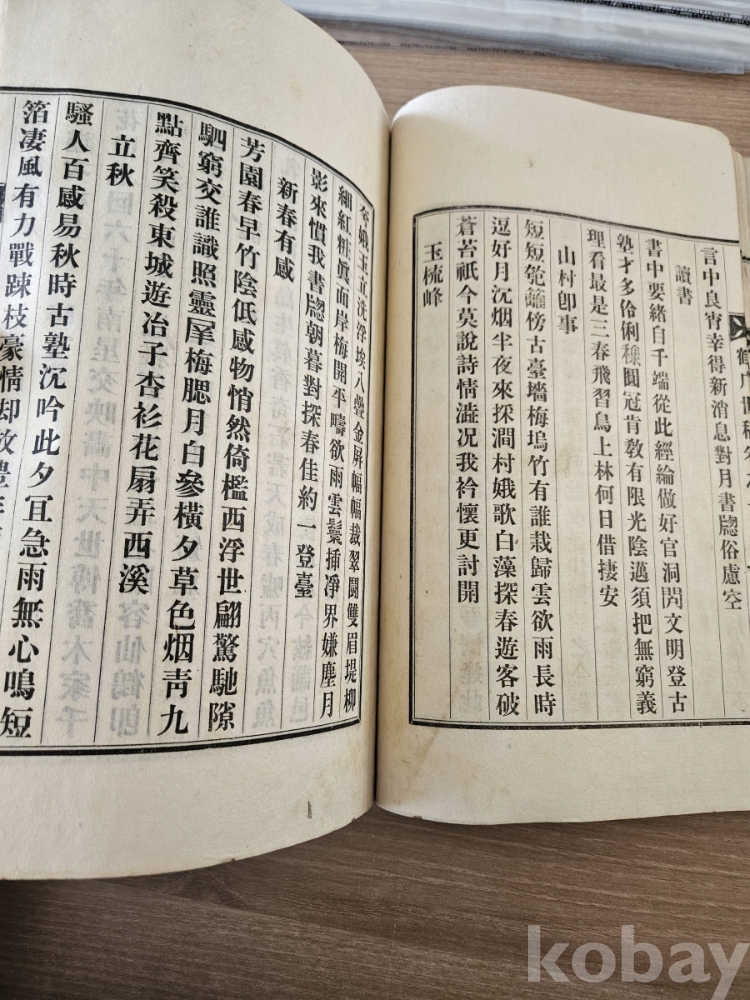 言中良宵幸得新消息對月書牕俗慮空
讀書
書中要緒自千端從此經論做好官洞閱文明登古
塾才多伶俐稷圓冠肯教有限光陰邁須把無窮義
理看最是三春飛習鳥上林何日借棲安
山村卽事
短短匏籬傍古臺墻梅塢竹有誰栽歸雲欲雨長時
逗好月沉烟半夜來採澗村娥歌白藻探春遊客破
蒼苔祇今莫說詩情澁况我衿懷更討開
玉梳峰
娥玉立洗浮埃八疊金屛幅幅裁翠鬪雙眉堤柳
細紅粧眞面岸梅開平疇欲雨雲鬟揷凈界嫌塵月
影來慣我書牕朝暮對探春佳約一登臺
新春有感
芳園春早竹陰低感物悄然倚檻西浮世翩驚馳隙
駟窮交誰識照靈犀梅腮月白參橫夕草色烟靑九
點齊笑殺東城遊冶子杏衫花扇弄西溪
立秋
騷人百感易秋時古塾沉吟此夕宜急雨無心鳴短
箔凄風有力戰踈枝豪情却放
kobay